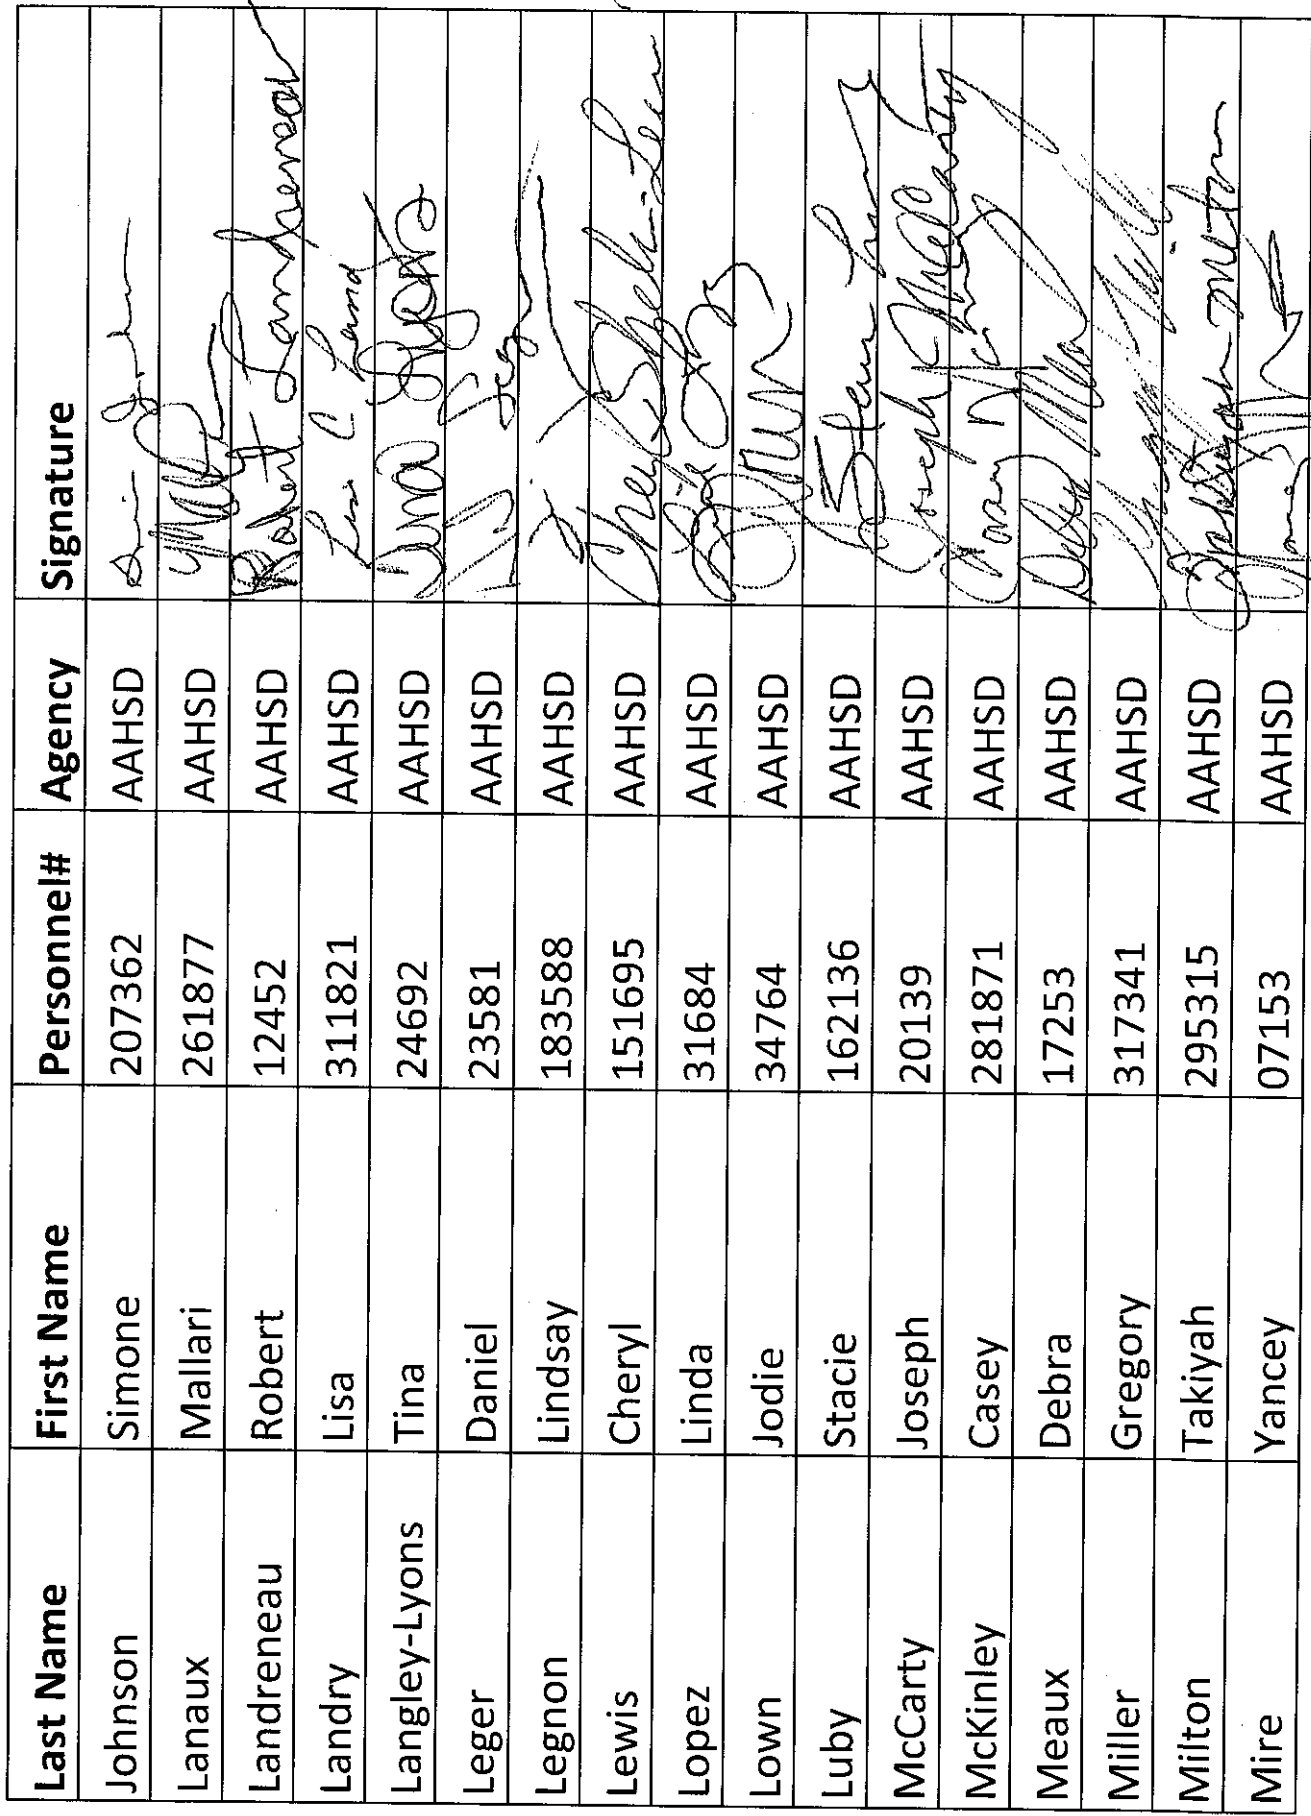 Last Name First Name Personnel# Agency Signature
Johnson Simone 207362 AAHSD
Lanaux Mallari 261877 AAHSD
Landreneau Robert 12452 AAHSD Robert Landreneau
Landry Lisa 311821 AAHSD Lisa C Land
Langley-Lyons Tina 24692 AAHSD Tina
Leger Daniel 23581 AAHSD
Legnon Lindsay 183588 AAHSD
Lewis Cheryl 151695 AAHSD Cheryl
Lopez Linda 31684 AAHSD
Lown Jodie 34764 AAHSD
Luby Stacie 162136 AAHSD
McCarty Joseph 20139 AAHSD Joseph McCarty
McKinley Casey 281871 AAHSD
Meaux Debra 17253 AAHSD
Miller Gregory 317341 AAHSD
Milton Takiyah 295315 AAHSD
Mire Yancey 07153 AAHSD